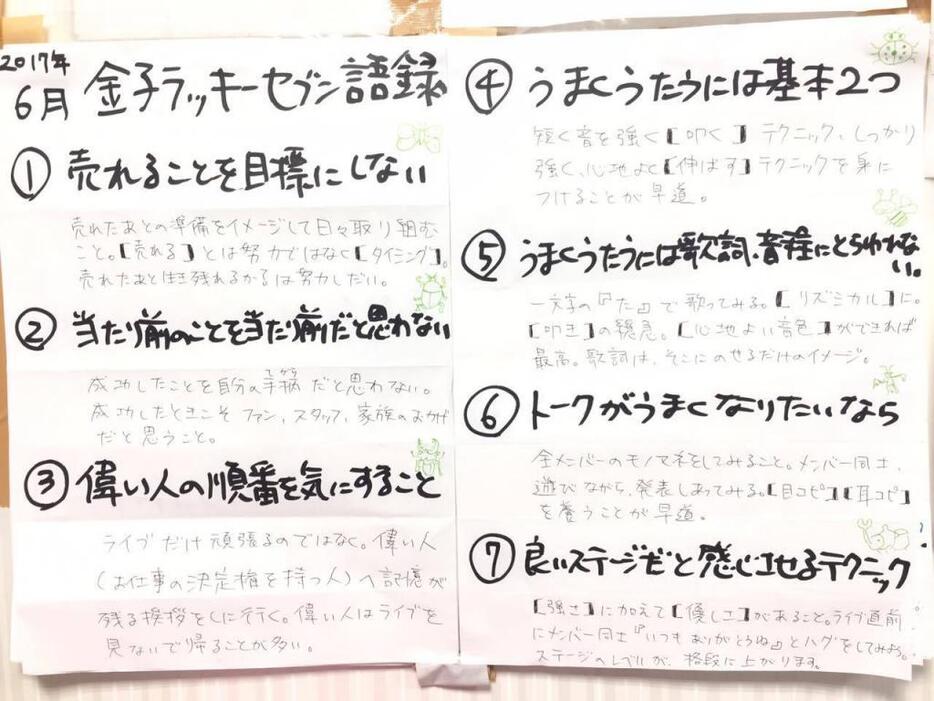 2017年
6月 金子ラッキーセブン語録
① 売れることを目標にしない
売れたあとの準備をイメージして日々取り組む
こと。【売れる】とは努力ではなく【タイミング】。
売れたあと生き残れるかは努力しだい。
② 当たり前のことを当たり前だと思わない
成功したことを自分の手柄だと思わない。
てがら
成功したときこそファン、スタッフ、家族のおかげ
だと思うこと。
③ 偉い人の順番を気にすること
ライブだけ頑張るのではなく。偉い人
(お仕事の決定権を持つ人)へ記憶が
残る挨拶をしに行く。偉い人はライブを
見ないで帰ることが多い。
④ うまくうたうには基本2つ
短く音を強く【叩く】テクニック、しっかり
強く、心地よく【伸ばす】テクニックを身に
つけることが早道。
⑤ うまくうたうには歌詞、音程にとらわれな
い。
一文字の『た』で歌ってみる。【リズミカル】に。
【叩き】の練習。【心地よい音色】ができれば
最高。歌詞は、そこにのせるだけのイメージ。
⑥ トークがうまくなりたいなら
全メンバーのモノマネをしてみること。メンバー同士、
遊びながら、発表しあってみる。【目コピ】【耳コピ】
を養うことが早道。
⑦ 良いステージだと感じさせるテクニック
【強さ】に加えて【優しさ】があること。ライブ直前
にメンバー同士『いつもありがとうね』とハグをしてみよう。
ステージのレベルが、格段に上がります。